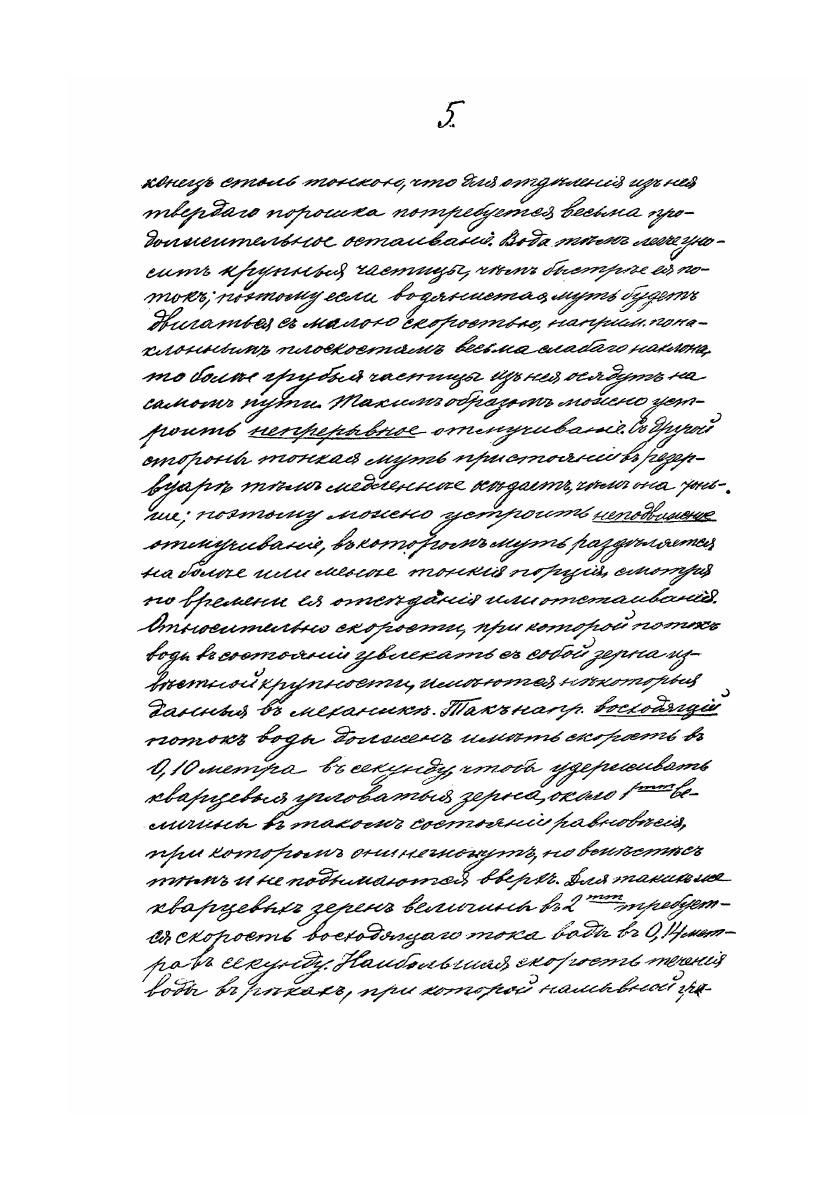 5.
конецъ столь тонкою, что для отдѣленія изъ нея
твердаго порошка потребуется весьма про-
должительное остаиваніе. Вода тѣмъ легче уно-
ситъ крупныя частицы, чѣмъ быстрѣе ея по-
токъ; поэтому если водянистая муть будетъ
двигаться съ малою скоростью, наприм. по на-
клоннымъ плоскостямъ весьма слабаго наклона,
то болѣе грубыя частицы изъ нея осядутъ на
самомъ пути. Такимъ образомъ можно уст-
роить непрерывное отмучиваніе. Съ другой
стороны тонкая муть при стояніи въ резер-
вуарѣ тѣмъ медленнѣе осѣдаетъ, чѣмъ она тонь-
ше; поэтому можно устроить неподвижное
отмучиваніе, въ которомъ муть раздѣляется
на болѣе или менѣе тонкія порціи, смотря
по времени ея отсѣданія или отстаиванія.
Относительно скорости, при которой потокъ
воды въ состояніи увлекать съ собой зерна из-
вѣстной крупности, имѣются нѣкоторыя
данныя въ механикѣ. Такъ напр. восходящій
потокъ воды долженъ имѣть скорость въ
0,10 метра въ секунду, чтобы удерживать
кварцевыя угловатыя зерна, около 1mm ве-
личины въ такомъ состояніи равновѣсія,
при которомъ они не тонутъ, но вмѣстѣ съ
тѣмъ и не подымаются вверхъ. Для такихъ же
кварцевыхъ зеренъ величины въ 2mm требует-
ся скорость восходящаго тока воды въ 0,14 мет-
ра въ секунду. Наибольшая скорость теченія
воды въ рѣкахъ, при которой намывной гра-